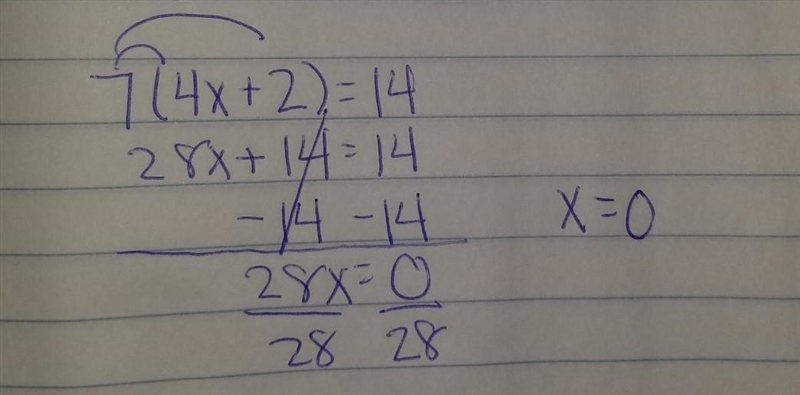 7(4x+2)=14
28x+14=14
-14 -14
28x=0
28 28
x=0